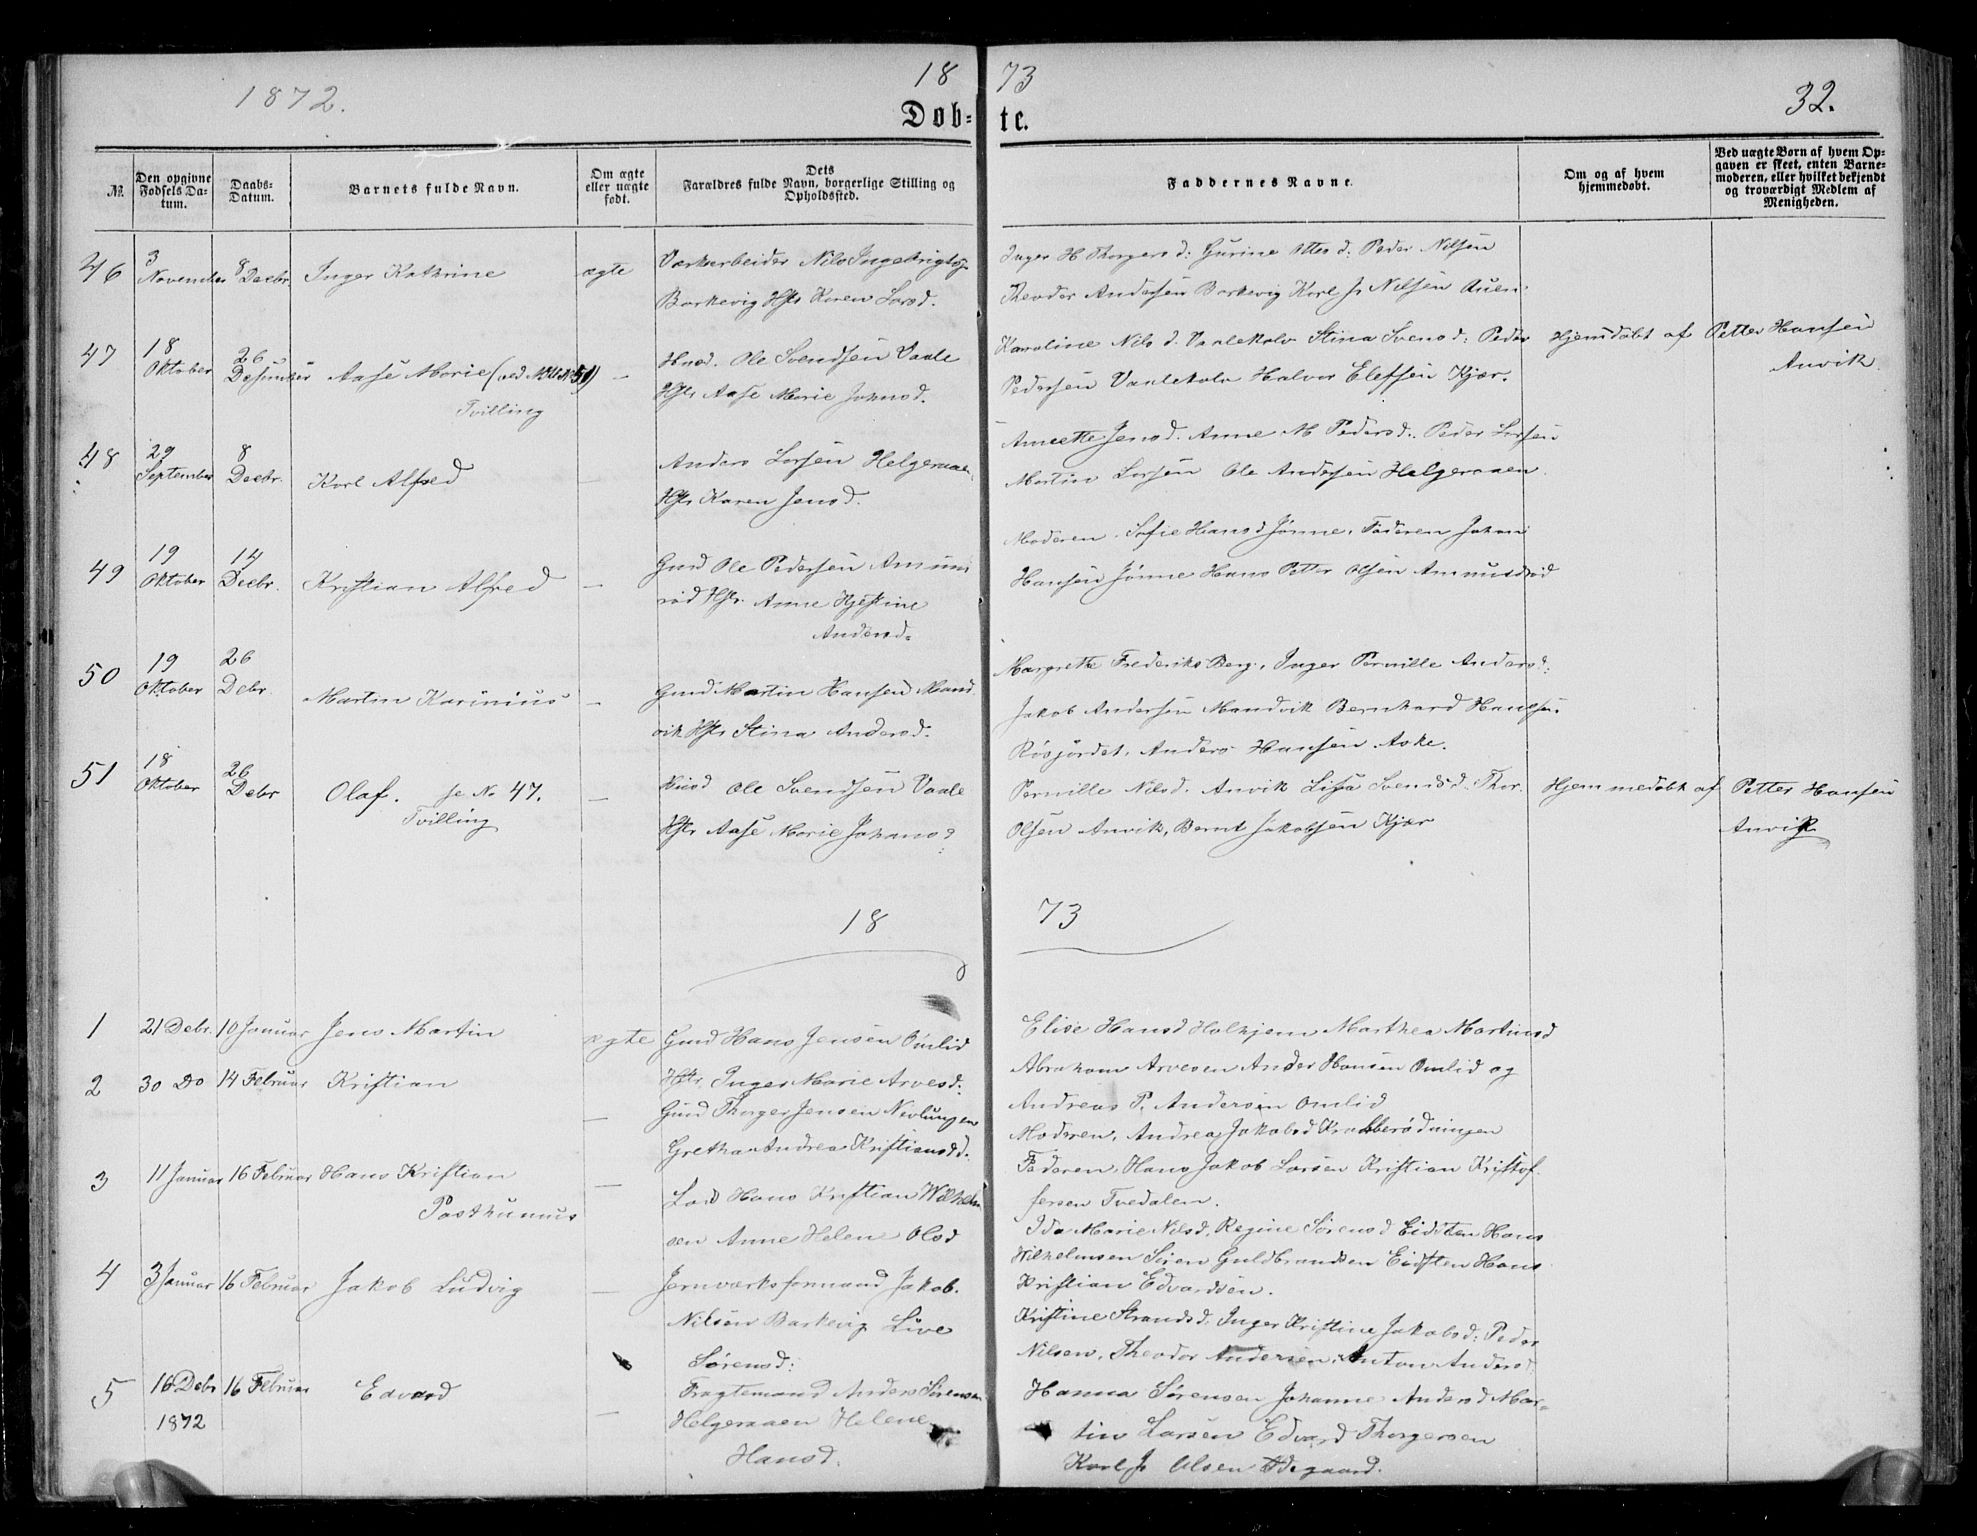 1872.
18 73
32.
Døb= te.
№.
Den opgivne Fødsels Datum.
Daabs-Datum.
Barnets fulde Navn.
Om ægte eller uægte født.
Dets Forældres fulde Navn, borgerlige Stilling og Opholdssted.
Faddernes Navne.
Om og af hvem hjemmedøbt.
Ved uægte Børn af hvem Opgaven er skeet, enten Barnemoderen, eller hvilket bekjendt og troværdigt Medlem af Menigheden.
46 3 November 8 Decbr. Inger Kathrine ægte
Værksarbeider Nils Ingebrigts.
Barkevig Hst Karen Larsd.
Inger H Thorgersd: Gurine Ottesd: Peder Nilsen
Theodor Andersen Barkevig Karl J. Nilsen Auen
47 18 Oktober 26 Desember Aase Marie (ved № 51) Tvilling —
Husd. Ole Svendsen Vaale
Hst Aase Marie Johnsd.
Karoline Nilsd. Vaalekolv Stina Svensd: Peder
Pedersen Vaalekolv Halvor Elefsen Kjær.
Hjemdøbt af Petter Hansen
Anvik.
48 29 September 8 Decbr. Karl Alfred —
Anders Larsen Helgeraaen
Hst Karen Jensd.
Annette Jensd. Anne M Pedersd. Peder Larsen
Martin Larsen Ole Andersen Helgeraaen
49 19 Oktober 14 Decbr. Kristian Alfred —
Gmd Ole Pedersen Amun
rød Hst. Anne Hjestine
Andersd.
Moderen. Sofie Hansd Jønne. Faderen Johan
Hansen Jønne Hans Petter Olsen Amundrød
50 19 Oktober 26 Debr. Martin Karinius —
Gmd Martin Hansen Mand
vik Hst Stina Andersd.
Margrethe Frederiks Berg. Inger Pernille Andersd:
Jakob Andersen Mandvik Bernhard Hansen
Røsjordet. Anders Hansen Aske.
51 18 Oktober 26 Debr Olaf. se No 47. Tvilling —
Husd Ole Svendsen Vaale
Hst Aase Marie Johansd
Pernille Nilsd. Anvik Lisa Svensd. Thor
Olsen Anvik, Bernt Jakobsen Kjær
Hjemmedøbt af Petter Hansen
Anvik
18 73
1 21 Debr. 10 Januar Jens Martin ægte
Gmd Hans Jensen Omlid
Hst. Inger Marie Arvesd.
Elise Hansd Holhjem Marthea Martinsd
Abraham Arvesen Ander Hansen Omlid og
Andreas P. Andersen Omlid
2 30 Do 14 Februar Kristian —
Gmd Thorger Jensen Nevlungen
Grethe Andrea Kristiansd.
Moderen, Andrea Jakobsd Krabberødningen
Faderen, Hans Jakob Larsen Kristian Kristof
fersen Tvedalen.
3 11 Januar 16 Februar Hans Kristian
Posthumus —
Lods Hans Kristian Wilhelm
sen Anne Helene Olsd
Ida Marie Nilsd, Regine Sørensd Eidsten Hans
Wilhelmsen Søren Guldbrandsen Eidsten Hans
Kristian Edvardsen.
4 3 Januar 16 Februar Jakob Ludvig —
Jernværksformand Jakob
Nilsen Barkevig Live
Sørensd:
Kristine Strandsd. Inger Kristine Jakobsd: Peder
Nilsen, Theodor Andersen, Anton Andersd
5 16 Debr 1872 16 Februar Edvard —
Fragtemand Anders Sørensen
Helgeraaen Helene
Hansd.
Hanna Sørensen Johanne Andersd Mar-
tin Larsen Edvard Thorgersen
Karl J. Olsen Ødegaard.